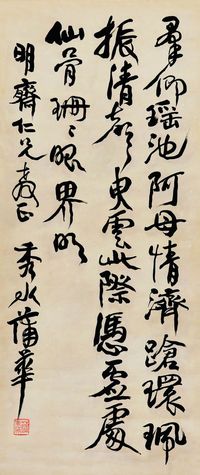 羣仰瑤池阿母情濟蹌環珮
振清聲 雲此際憑虛處
仙骨珊〻眼界明
明齋仁兄教正 秀水蒲華